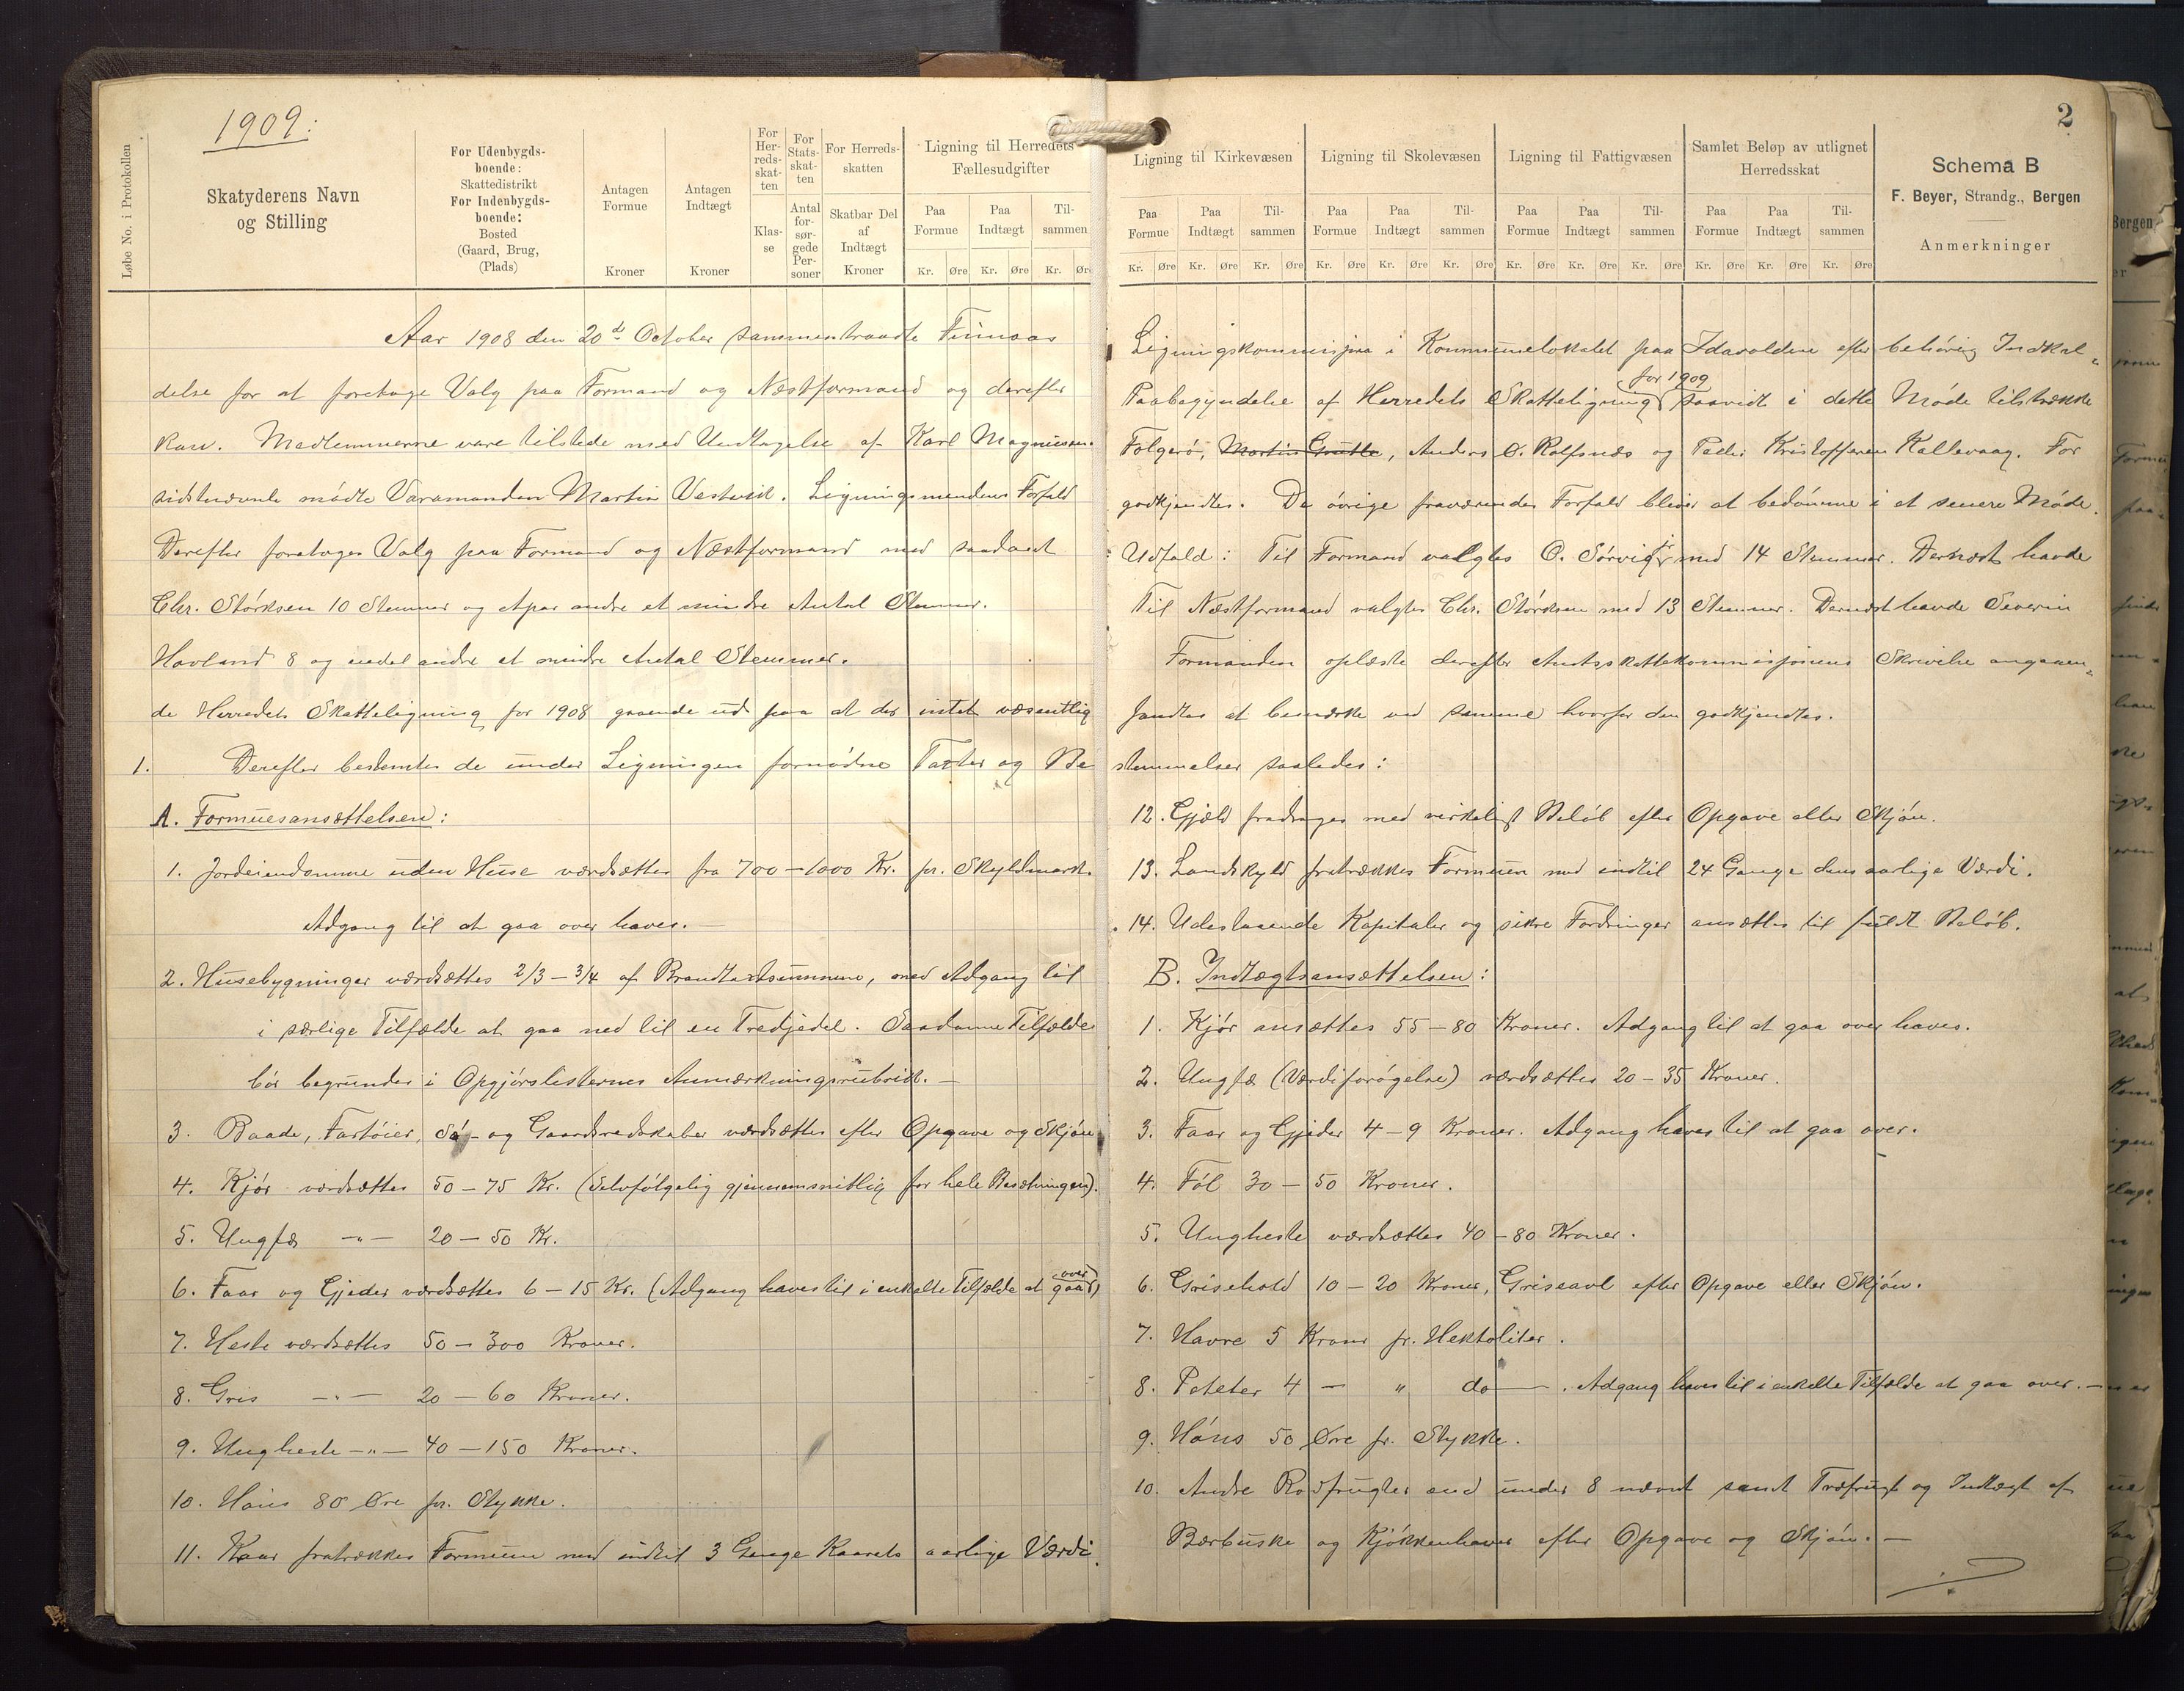 1909.
2
Løbe No. i Protokollen
Skatyderens Navn og Stilling
For Udenbygds-boende: Skattedistrikt
For Indenbygds-boende: Bosted (Gaard, Brug, (Plads)
Antagen Formue Kroner
Antagen Indtægt Kroner
For Her-reds-skat-ten Klas-se
For Stats-skat-ten Antal for-sør-gede Per-soner
For Herreds-skatten Skatbar Del af Indtægt Kroner
Ligning til Herredets Fællesudgifter
Paa Formue Paa Indtægt Til-sammen
Kr. Øre Kr. Øre Kr. Øre
Ligning til Kirkevæsen
Paa Formue Paa Indtægt Til-sammen
Kr. Øre Kr. Øre Kr. Øre
Ligning til Skolevæsen
Paa Formue Paa Indtægt Til-sammen
Kr. Øre Kr. Øre Kr. Øre
Ligning til Fattigvæsen
Paa Formue Paa Indtægt Til-sammen
Kr. Øre Kr. Øre Kr. Øre
Samlet Beløp av utlignet Herredsskat
Paa Formue Paa Indtægt Til-sammen
Kr. Øre Kr. Øre Kr. Øre
Schema B
F. Beyer, Strandg., Bergen
Anmerkninger
Aar 1908 den 20de October sammentraadte Finnaas Ligningskommisjon i Kommunelokalet paa Idavolden efter behørig Indkal-
delse for at foretage Valg paa Formand og Næstformand og derefter Paabegyndelse af Herredets Skatteligning for 1909 saavidt i dette Møde tilstrække
kan. Medlemmerne vare tilstede med Undtagelse af Karl Magnussen Folgerø, Martin Grutle, Anders O. Rolfsnes og Peder Kristoffersen Kallevaag. For
sidstnævnte mødte Varamanden Martin Vestvik. Ligningsmendenes Forfald godkjendtes. De øvrige fraværendes Forfald bliver at bedømme i et senere Møde.
Derefter foretoges Valg paa Formand og Næstformand med saadant Udfald: Til Formand valgtes O. Sørvig jr med 14 Stemmer. Dernæst havde
Chr. Størksen 10 Stemmer og et par andre et mindre Antal Stemmer. Til Næstformand valgtes Chr. Størksen med 13 Stemmer. Dernæst havde Severin
Hovland 8 og endel andre et mindre Antal Stemmer. Formanden oplæste derefter Amtsskattekommisjonens Skrivelse angaaen-
de Herredets Skatteligning for 1908 gaaende ud paa at der intet væsentlig fandtes at bemærke ved samme hvorfor den godkjendtes.
1. Derefter bestemtes de under Ligningen fornødne Taxter og Be stemmelser saaledes:
A. Formuesansættelsen:
1. Jordeiendomme uden Huse værdsættes fra 700 – 1000 Kr. pr. Skyldmark.
Adgang til at gaa over haves. —
2. Husebygninger værdsættes 2/3 – 3/4 af Brandtaxtsummene, med Adgang til
i særlige Tilfælde at gaa ned til en Tredjedel. Saadanne Tilfælde
bør begrundes i Opgjørslisternes Anmærkningsrubrik. —
3. Baade, Fartøier, Sø- og Gaardsredskaber værdsættes efter Opgave og Skjøn
4. Kjør værdsættes 50 – 75 Kr. (Selvfølgelig gjennemsnitlig for hele Besætningen).
5. Ungfæ —„— 20 – 50 Kr.
6. Faar og Gjeder værdsættes 6 – 15 Kr. (Adgang haves til i enkelte Tilfælde at gaa over)
7. Heste værdsættes 50 – 300 Kroner.
8. Gris —„— 20 – 60 Kroner.
9. Ungheste —„— 40 – 150 Kroner.
10. Høns 80 Øre pr. Stykke.
11. Kaar fratrækkes Formuen med indtil 3 Gange Kaarets aarlige Værdi.
12. Gjæld fradrages med virkeligt Beløb efter Opgave eller Skjøn.
13. Landskyld fratrækkes Formuen med indtil 24 Gange dens aarlige Værdi.
14. Udestaaende Kapitaler og sikre Fordringer ansættes til fuldt Beløb.
B. Indtægtsansættelsen:
1. Kjør ansættes 55 – 80 Kroner. Adgang til at gaa over haves.
2. Ungfæ (Værdiforøgelse) værdsættes 20 – 35 Kroner.
3. Faar og Gjeder 4 – 9 Kroner. Adgang haves til at gaa over.
4. Føl 30 – 50 Kroner.
5. Ungheste værdsættes 40 – 80 Kroner.
6. Grisehold 10 – 20 Kroner, Griseavl efter Opgave eller Skjøn.
7. Havre 5 Kroner pr. Hektoliter.
8. Poteter 4 — „ do —. Adgang haves til i enkelte Tilfælde at gaa over. —
9. Høns 50 Øre pr. Stykke.
10. Andre Rodfrugter end under 8 nævnt samt Træfrugt og Indtægt af
Bærbuske og Kjøkkenhaver efter Opgave og Skjøn. —